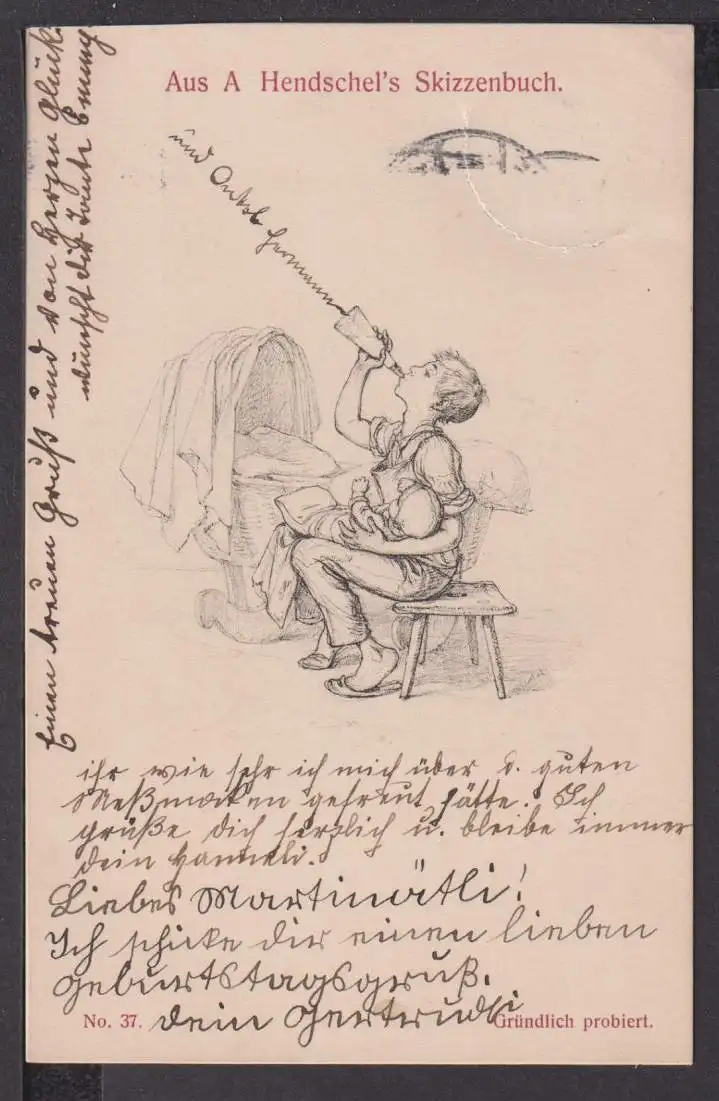 Aus A Hendschel's Skizzenbuch.
Einen treuen Gruß und von Herzen Glück
wünscht dir Tante Emmy
und Onkel Hermann
ihr wie sehr ich mich über d. guten
gefreut hätte. Ich
grüße dich herzlich u. bleibe immer
dein Hanneli.
Liebes Martinätli!
Ich schicke dir einen lieben
Geburtstagsgruß.
dein Gertrudli
No. 37.
Gründlich probiert.